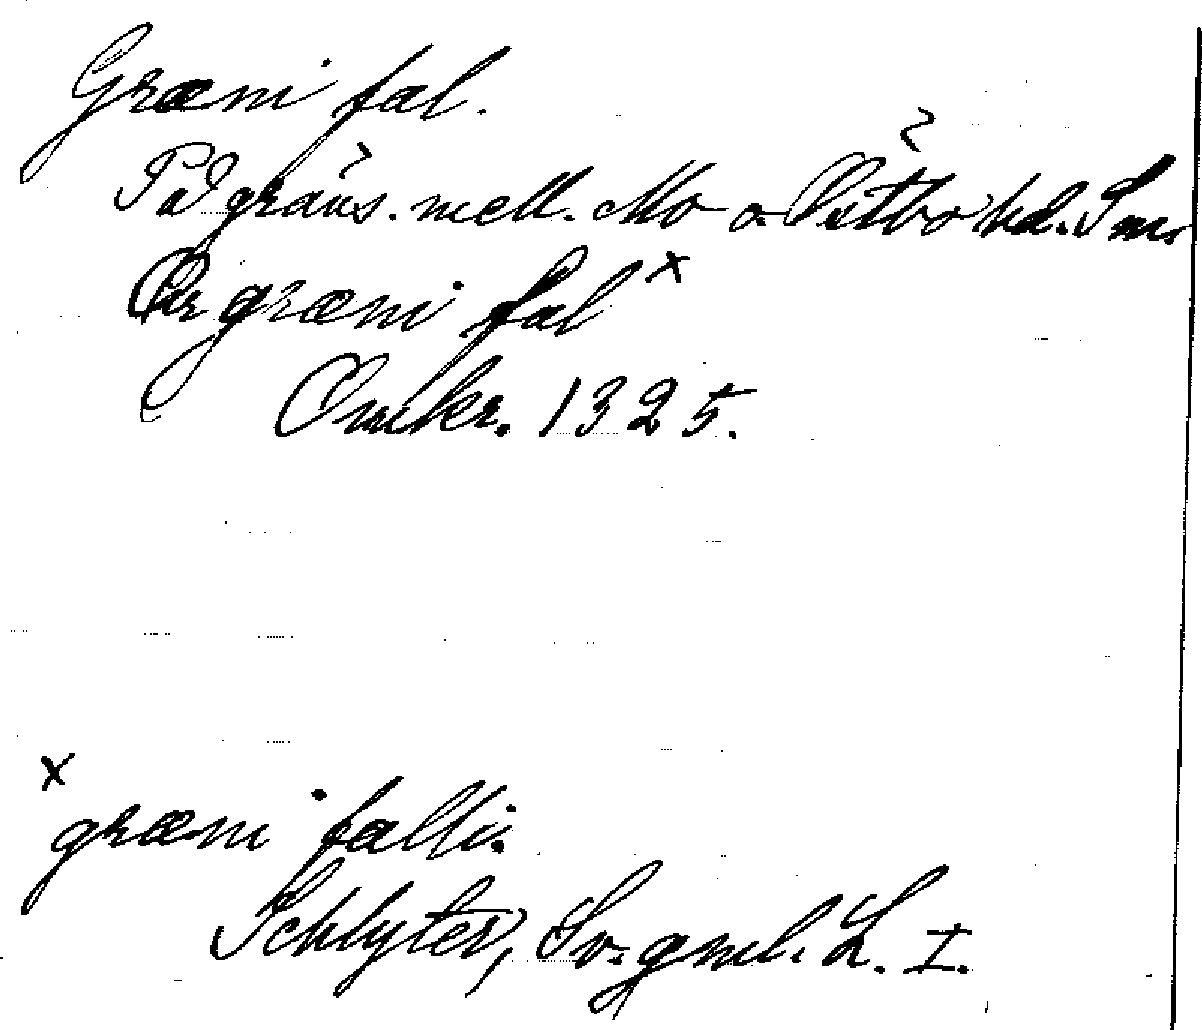 Græni fal.
På gräns. mell. Mo o. Västbo hd. Sm.
Per græni fal x
Omkr. 1325.
x
græni fallir
Schlyter, Sv. gml. L. I.